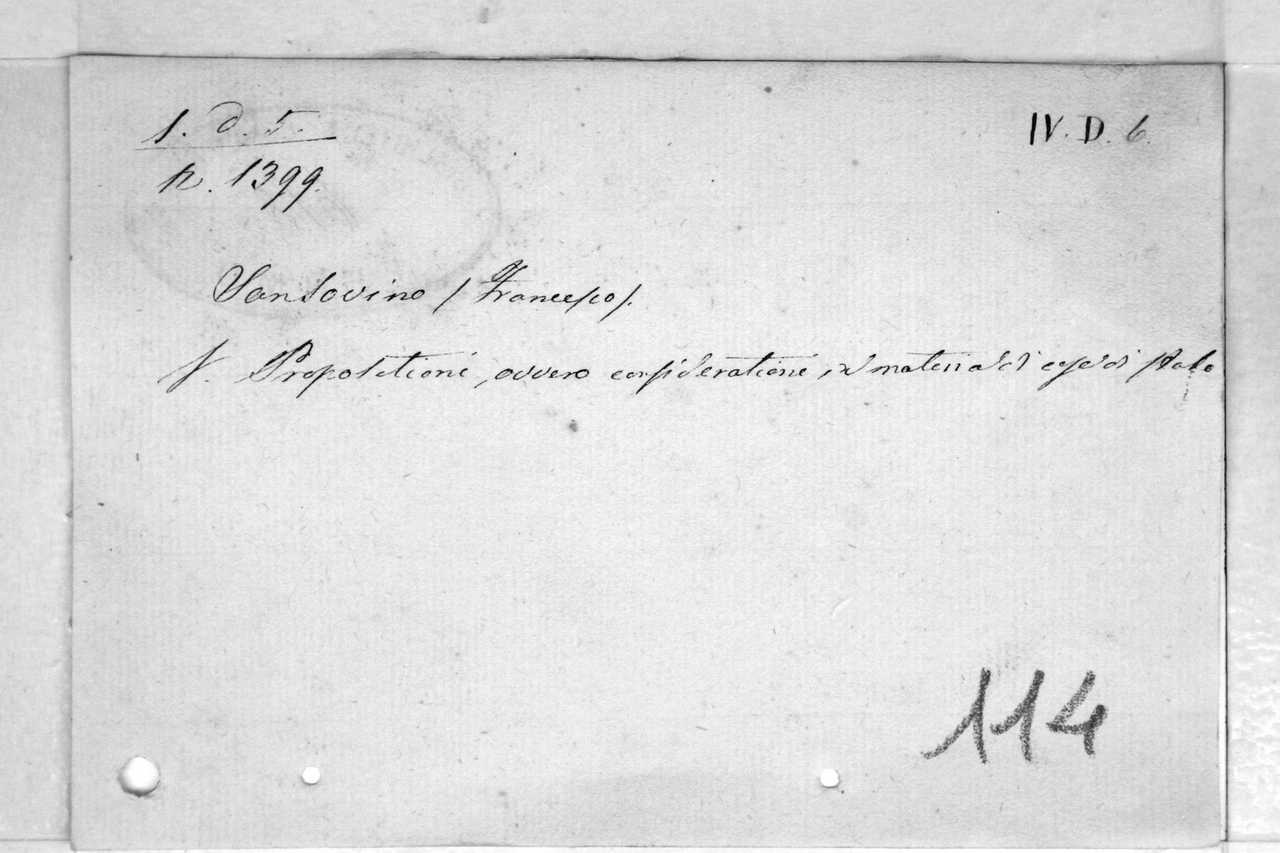 1. d. 5.
IV. D. 6.
n. 1399.
Sansovino (Francesco).
Propositioni, ovvero considerationi, in materia di cose di Stato
114